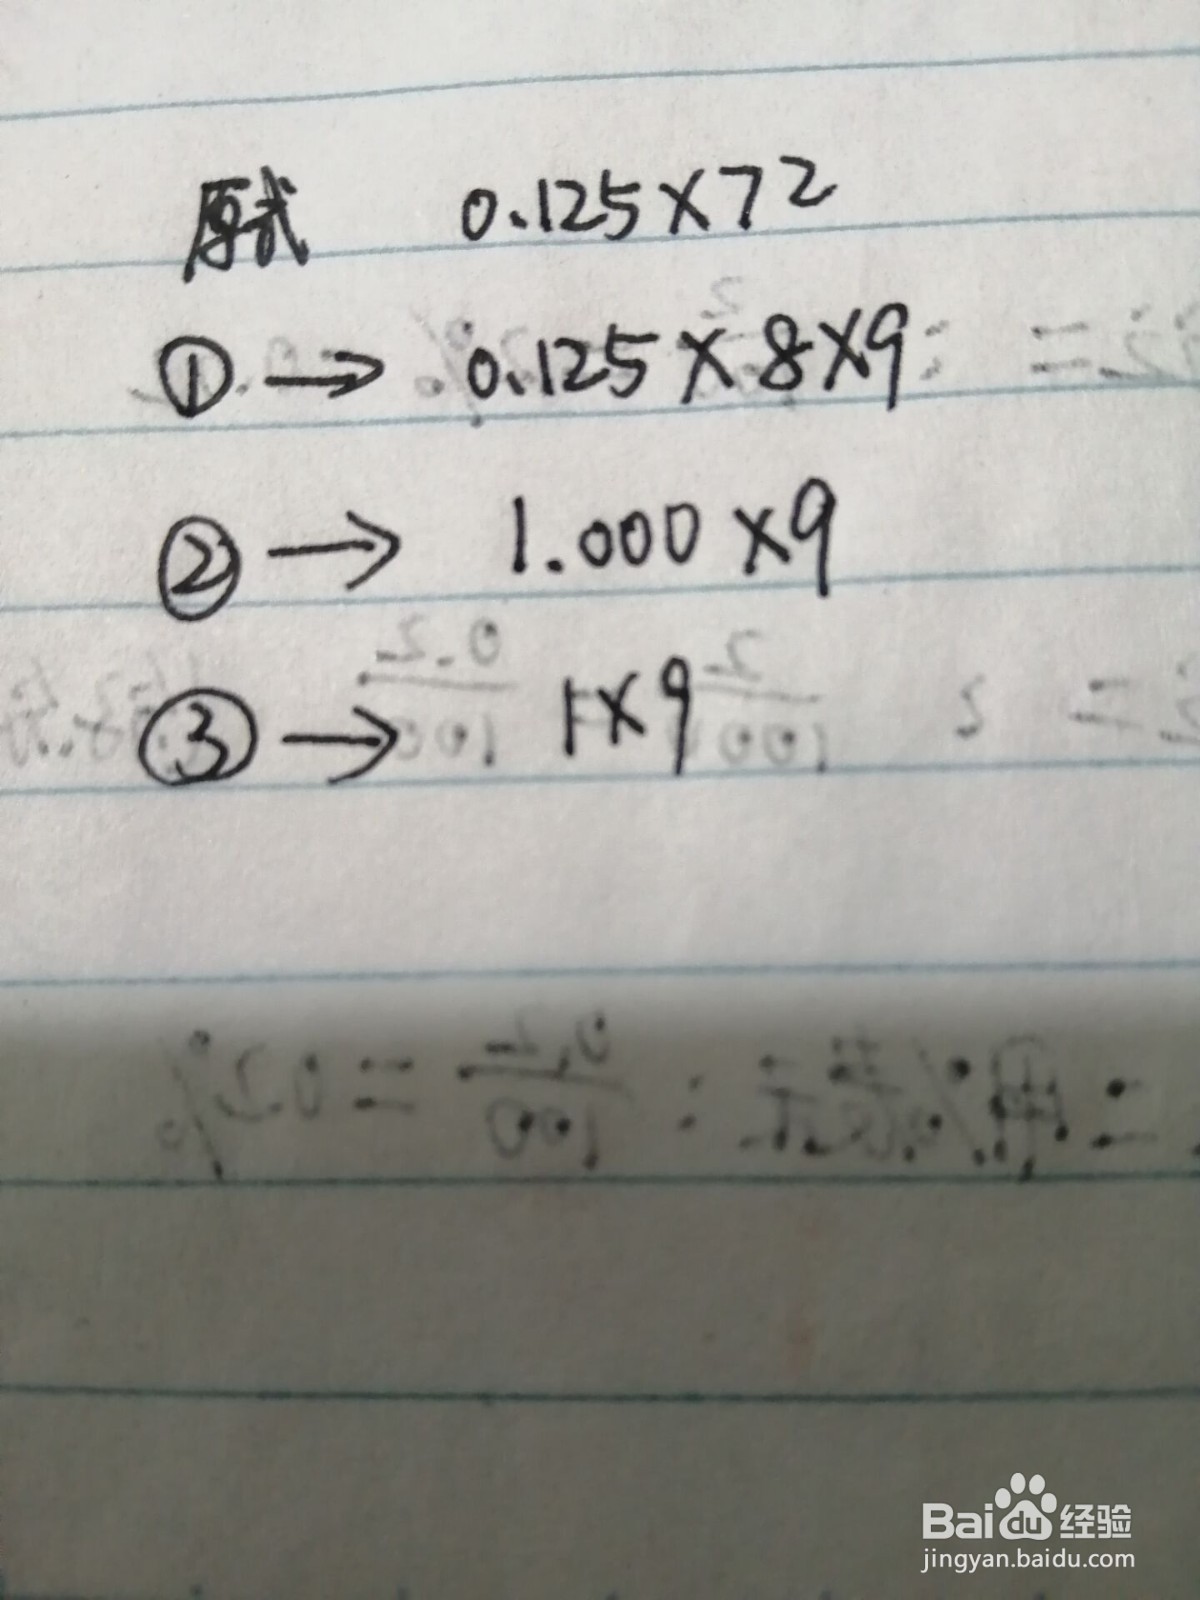 原式 0.125×72
① → 0.125×8×9
② → 1.000×9
③ → 1×9
Baidu经验
jingyan.baidu.com